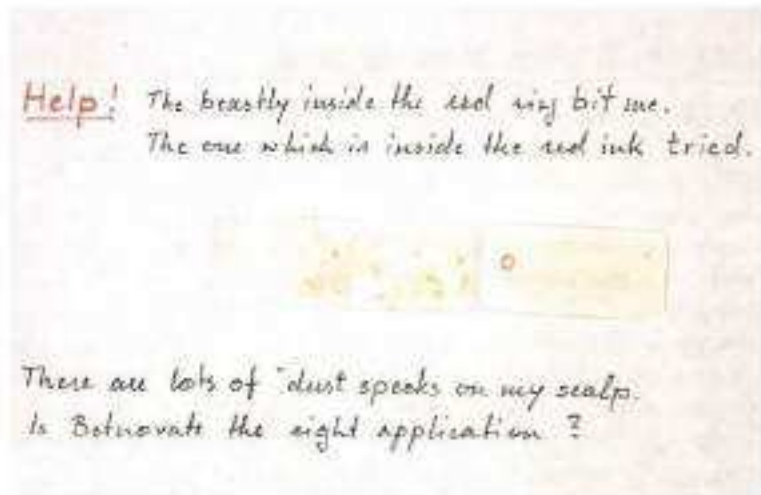 Help! The beastly inside the red ring bit me.
The one which is inside the red ink tried.
There are lots of "dust specks on my scalp.
Is Betnovate the right application?